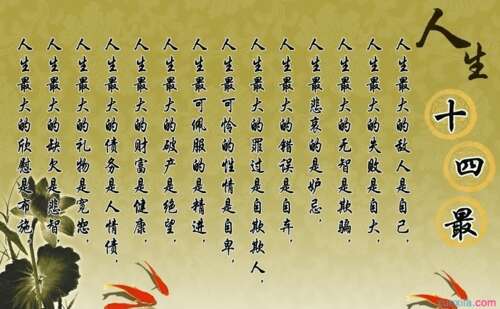 人生
十四最
人生最大的敌人是自己,
人生最大的失败是自大,
人生最大的无智是欺骗,
人生最悲哀的是妒忌,
人生最大的错误是自弃,
人生最大的罪过是自欺欺人,
人生最可怜的性情是自卑,
人生最可佩服的是精进,
人生最大的破产是绝望,
人生最大的财富是健康,
人生最大的债务是人情债,
人生最大的礼物是宽恕,
人生最大的缺欠是悲智,
人生最大的欣慰是布施,